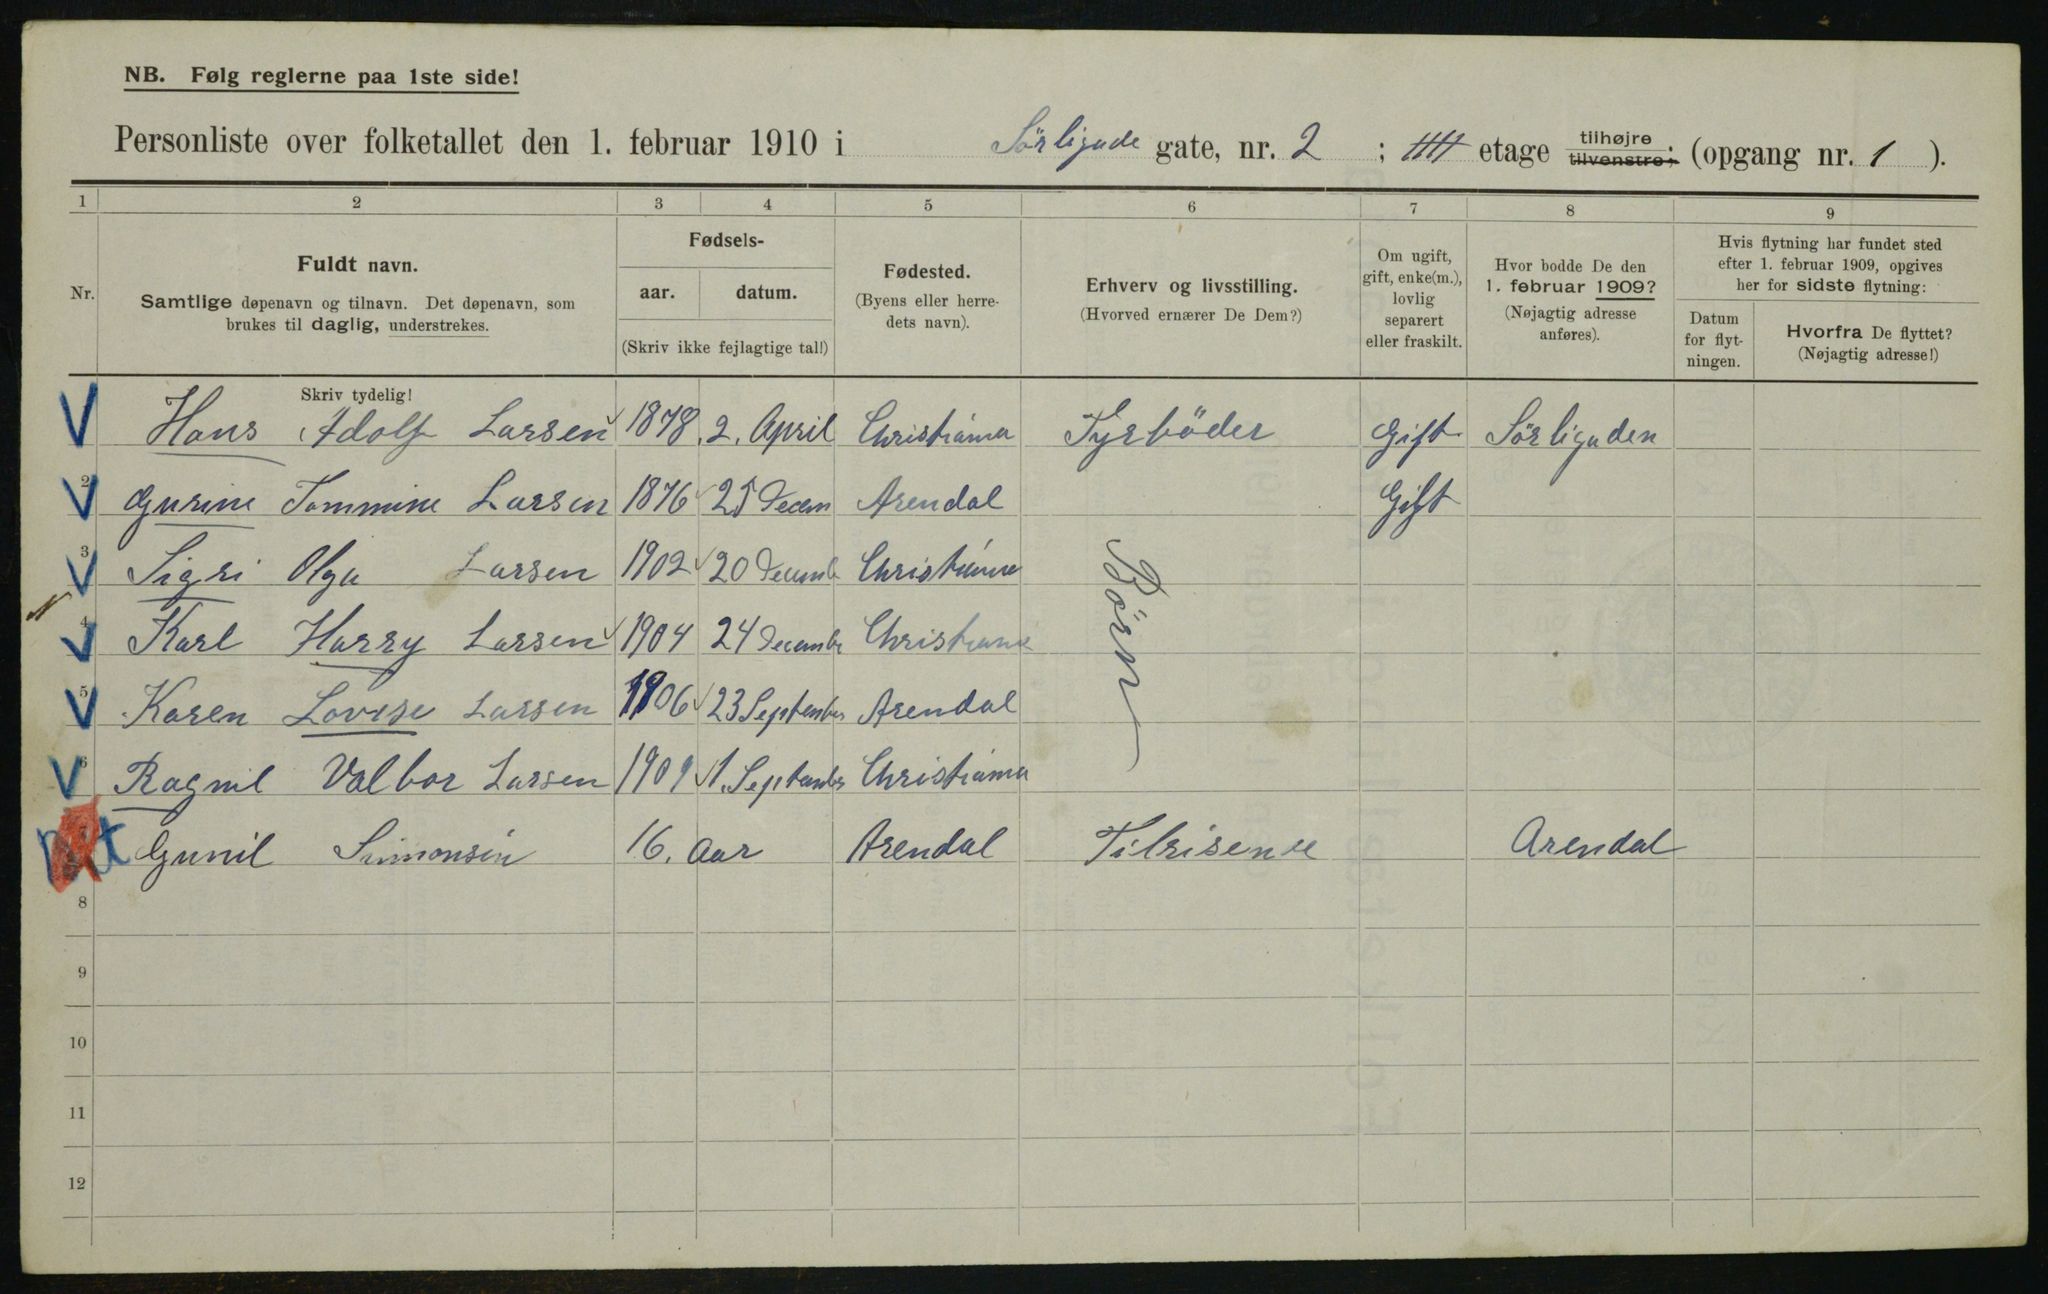 NB. Følg reglerne paa 1ste side!
Personliste over folketallet den 1. februar 1910 i Sörligade gate, nr. 2 ; IIII etage tilhøjre tilvenstre; (opgang nr. 1 ).
1 2 3 4 5 6 7 8 9
Nr.
Fuldt navn.
Samtlige døpenavn og tilnavn. Det døpenavn, som
brukes til daglig, understrekes.
Fødsels-
aar. datum.
(Skriv ikke fejlagtige tal!)
Fødested.
(Byens eller herre-
dets navn).
Erhverv og livsstilling.
(Hvorved ernærer De Dem?)
Om ugift,
gift, enke(m.),
lovlig
separert
eller fraskilt.
Hvor bodde De den
1. februar 1909?
(Nøjagtig adresse
anføres).
Hvis flytning har fundet sted
efter 1. februar 1909, opgives
her for sidste flytning:
Datum
for flyt-
ningen.
Hvorfra De flyttet?
(Nøjagtig adresse!)
Skriv tydelig!
Hans Adolf Larsen 1878 2. April Christiania Fyrböder Gift Sörligaden
2 Gurine Tommine Larsen 1876 25 Decem Arendal Gift
3 Sigri Olga Larsen 1902 20 Decemb Christiania
Börn
4 Karl Harry Larsen 1904 24 Decembe Christiania
5 Karen Lovise Larsen 1906 23 September Arendal
6 Ragnil Valbor Larsen 1909 1. September Christiania
Gunil Simonsen 16. aar Arendal Tilreisende Arendal
8
9
10
11
12